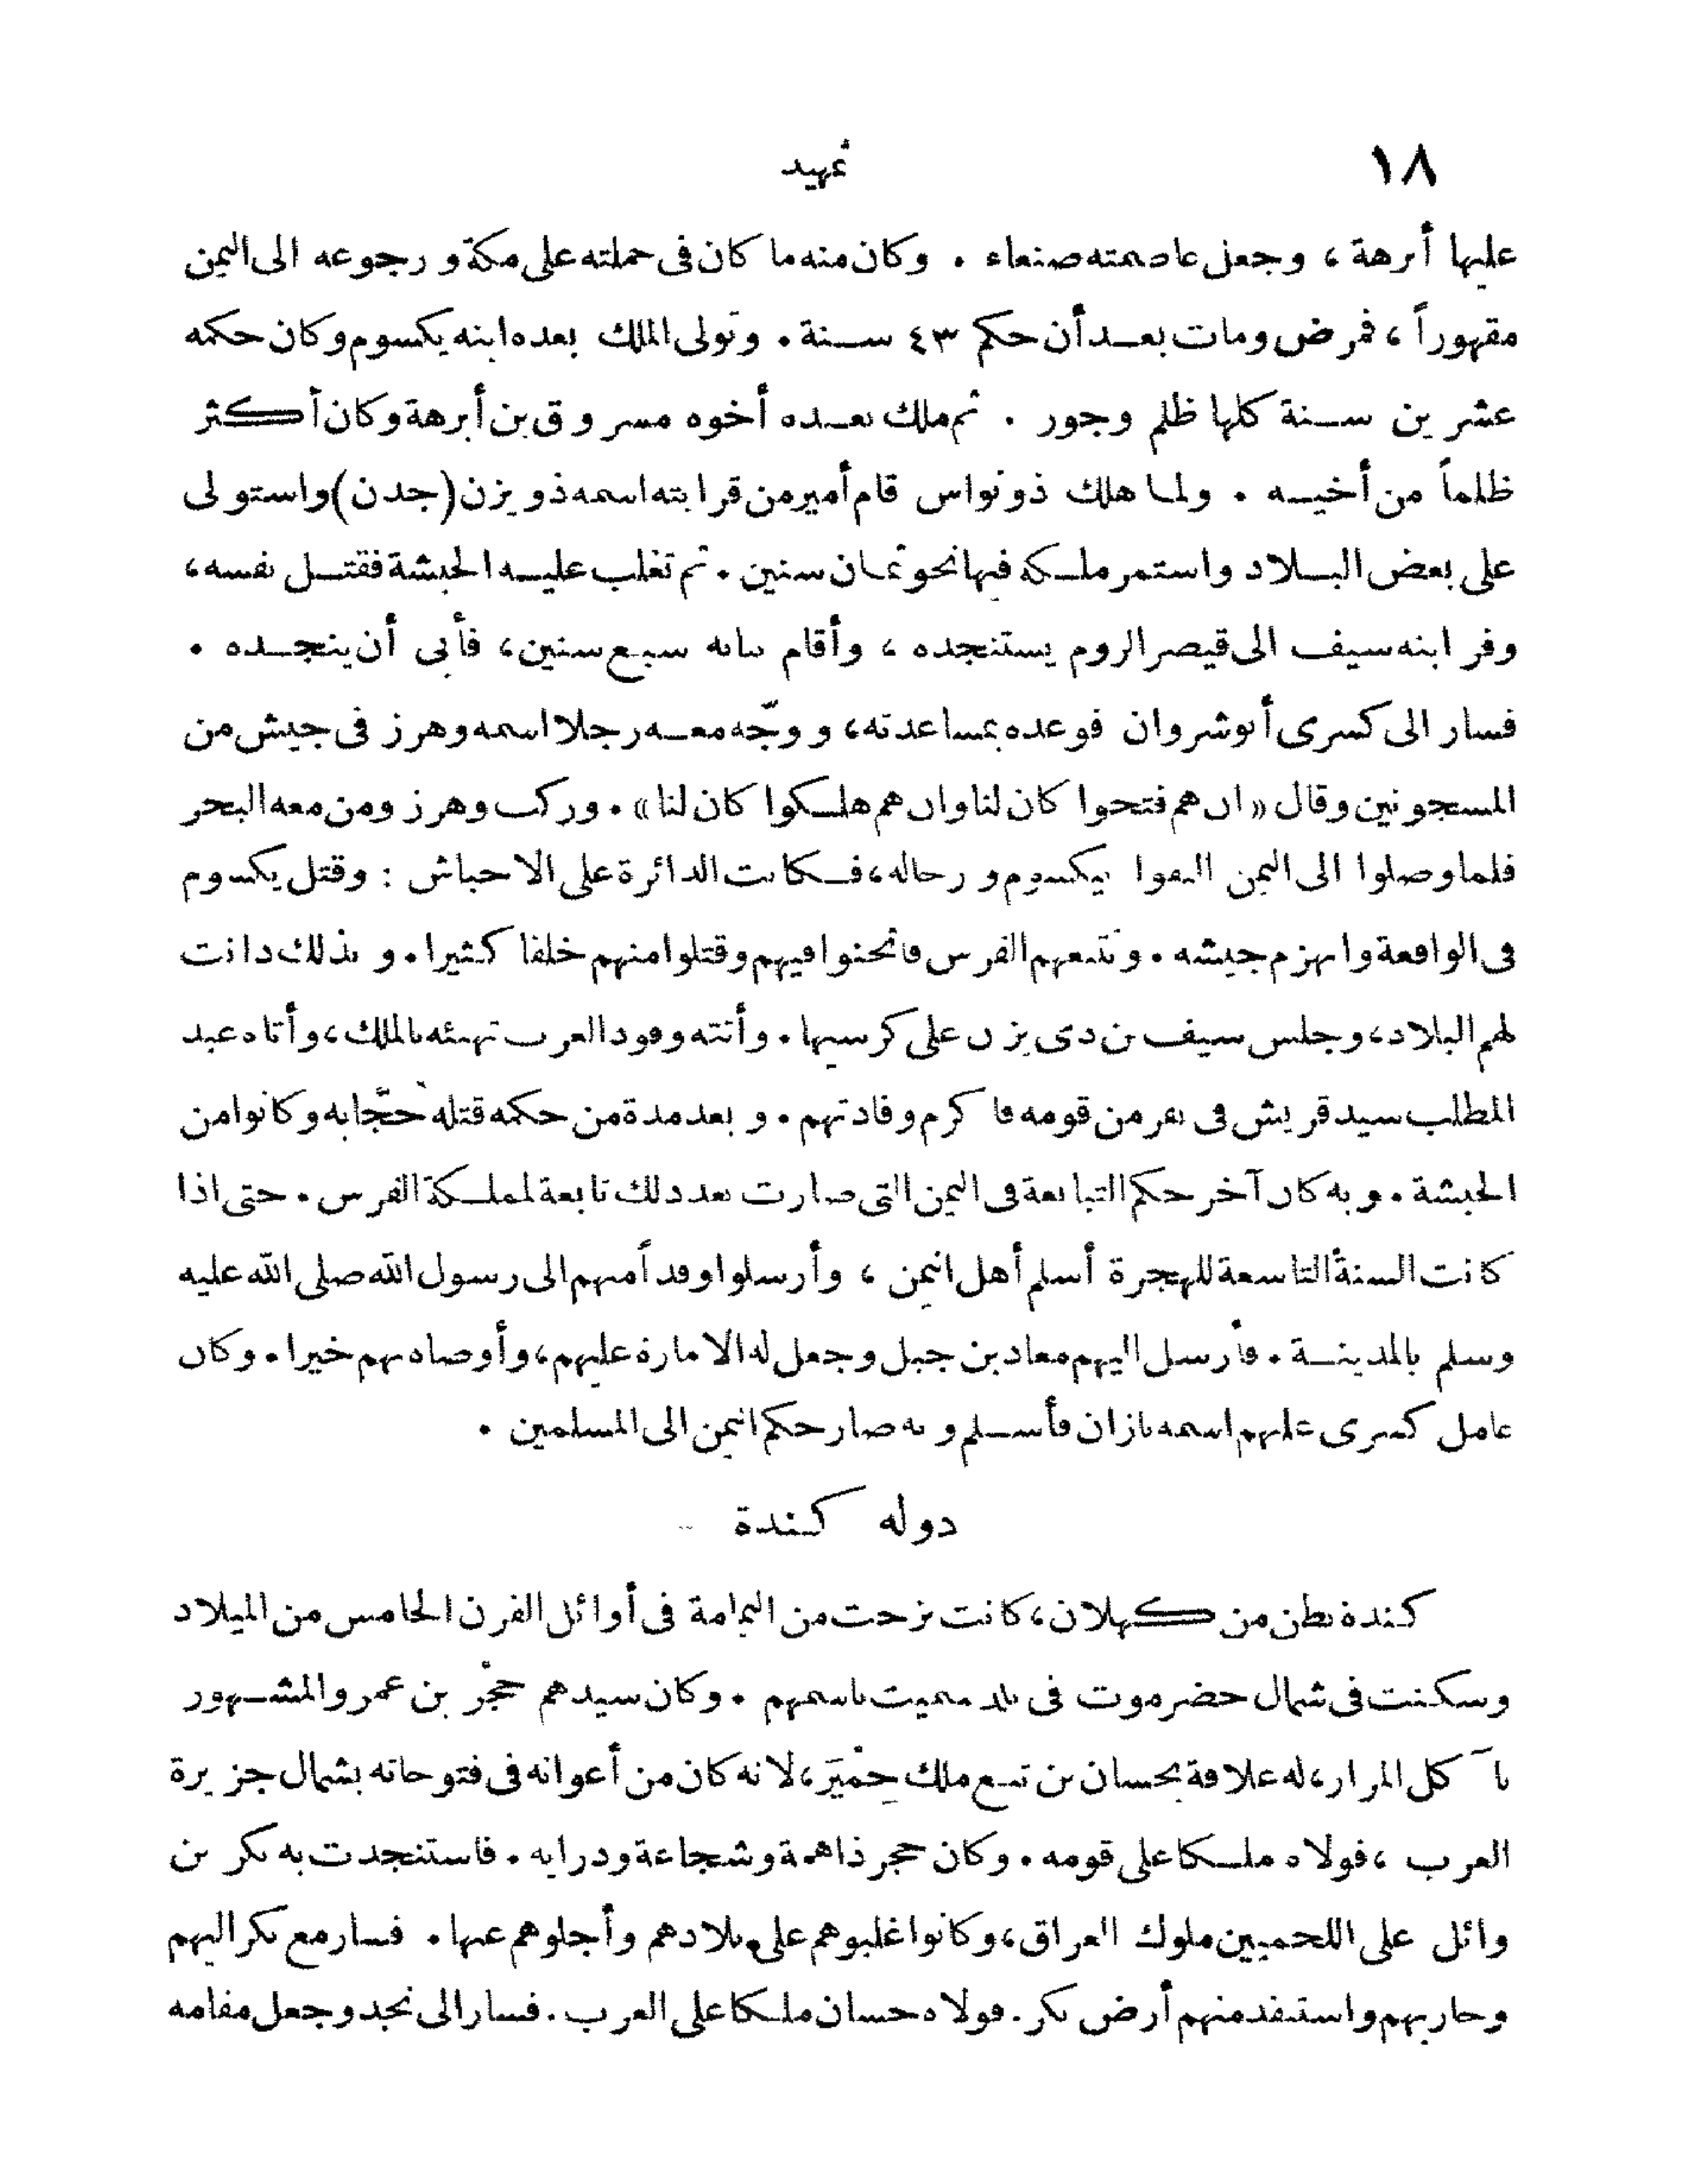 ١٨ تمهيد
عليها أبرهة ، وجعل عاصمته صنعاء . وكان منه ما كان فى حملته على مكة ورجوعه الى اليمن
مقهوراً ، فمرض ومات بعد أن حكم ٤٣ سنة . وتولى الملك بعده ابنه يكسوم وكان حكمه
عشرين سنة كلها ظلم وجور . ثم ملك بعده أخوه مسروق بن أبرهة وكان أكثر
ظلماً من أخيه . ولما هلك ذو نواس قام أمير من قرابته اسمه ذو يزن (جدن) واستولى
على بعض البلاد واستمر ملكه فيها نحو ثمان سنين . ثم تغلب عليه الحبشة فقتل نفسه ،
وفر ابنه سيف الى قيصر الروم يستنجده ، وأقام ببابه سبع سنين ، فأبى أن ينجده .
فسار الى كسرى أنوشروان فوعده بمساعدته ، ووجّه معه رجلا اسمه وهرز فى جيش من
المسجونين وقال « ان هم فتحوا كان لنا وان هم هلكوا كان لنا » . وركب وهرز ومن معه البحر
فلما وصلوا الى اليمن التقوا بيكسوم ورجاله ، فكانت الدائرة على الاحباش : وقتل يكسوم
فى الواقعة وانهزم جيشه . وتتبعهم الفرس فاثخنوا فيهم وقتلوا منهم خلقا كثيرا . وبذلك دانت
لهم البلاد ، وجلس سيف بن ذى يزن على كرسيها . وأتته وفود العرب تهنئه بالملك ، وأتاه عبد
المطلب سيد قريش فى نفر من قومه فاكرم وفادتهم . وبعد مدة من حكمه قتله حجّابه وكانوا من
الحبشة . وبه كان آخر حكم التبابعة فى اليمن التى صارت بعد ذلك تابعة لمملكة الفرس . حتى اذا
كانت السنة التاسعة للهجرة أسلم أهل اليمن ، وأرسلوا وفداً منهم الى رسول الله صلى الله عليه
وسلم بالمدينة . فأرسل اليهم معاذ بن جبل وجعل له الامارة عليهم ، وأوصاه بهم خيرا . وكان
عامل كسرى عليهم اسمه بازان فأسلم وبه صار حكم اليمن الى المسلمين .
دولة كندة
كندة بطن من كهلان ، كانت نزحت من اليمامة فى أوائل القرن الخامس من الميلاد
وسكنت فى شمال حضرموت فى بلد سميت باسمهم . وكان سيدهم حجْر بن عمرو المشهور
بآكل المرار ، له علاقة بحسان بن تبع ملك حِمْيَر ، لانه كان من أعوانه فى فتوحاته بشمال جزيرة
العرب ، فولاه ملكا على قومه . وكان حجر ذا همة وشجاعة ودراية . فاستنجدت به بكر بن
وائل على اللخميين ملوك العراق ، وكانوا غلبوهم على بلادهم وأجلوهم عنها . فسار مع بكر اليهم
وحاربهم واستنقد منهم أرض بكر . فولاه حسان ملكا على العرب . فسار الى نجد وجعل مقامه